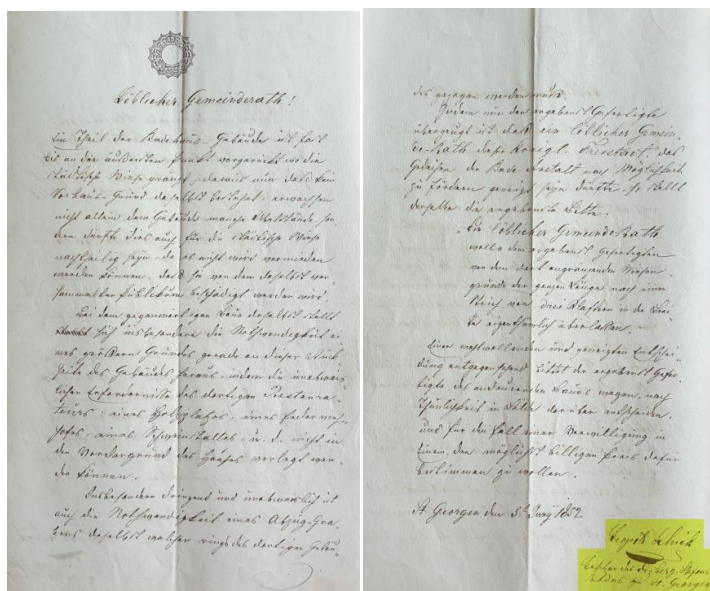 Löblicher Gemeinderath!
Ein Theil der Badehaus-Gebäude ist fast
bis an den äußersten Punkt vorgerückt wo die
städtische Wiese grenzt, daraus nun daß kein
Vorhaut-Grund daselbst besteht, erwachsen
nicht allein dem Gebäude manche Übelstände, son
dern dürfte dies auch für die städtische Wiese
nachtheilig seyn, da es nicht wird vermieden
werden können, daß sie von dem daselbst ver-
sammelten Publikum beschädigt werden wird.
Bei dem gegenwärtigen Baue daselbst stellt
sich insbesondere die Nothwendigkeit ei
nes größern Grundes gerade an dieser Rück
seite des Gebäudes heraus, indem die unabweis-
lichen Erfordernisse des dortigen Restaura-
teurs: eines Holzplatzes, eines Federvieh-
hofes, eines Schweinstalles u. d. nicht in
den Vordergrund des Hauses verlegt wer-
den können.
Insbesondere dringend und unabweislich ist
auch die Nothwendigkeit eines Abzug-Gra-
bens daselbst welcher rings des dortigen Gebäu-
des gezogen werden muß.
Indem nun der ergebenst Gefertigte
überzeugt ist daß ein löblicher Gemein-
de-Rath dieser königl. Freistadt, das
Gedeihen der Bade-Anstalt nach Möglichkeit
zu fördern geneigt seyn dürfte, so stellt
derselbe die ergebenste Bitte:
Ein löblicher Gemeinde Rath
wolle dem ergebenst Gefertigten
von dem dort angränzenden Wiesen-
grunde der ganzen Länge nach einen
Strich von drei Klaftern in der Brei-
te eigenthümlich überlassen.
Einer wohlwollenden und geneigten Entschei-
dung entgegensehend bittet der ergebenst Gefer-
tigte des andauernden Baues wegen, nach
Thunlichkeit in Bälde darüber entscheiden,
und für den Fall einer Bewilligung in
Einem, den möglichst billigen Preis dafür
bestimmen zu wollen.
St Georgen den 5t Juny 1852
Leopold
zu St. Georgen